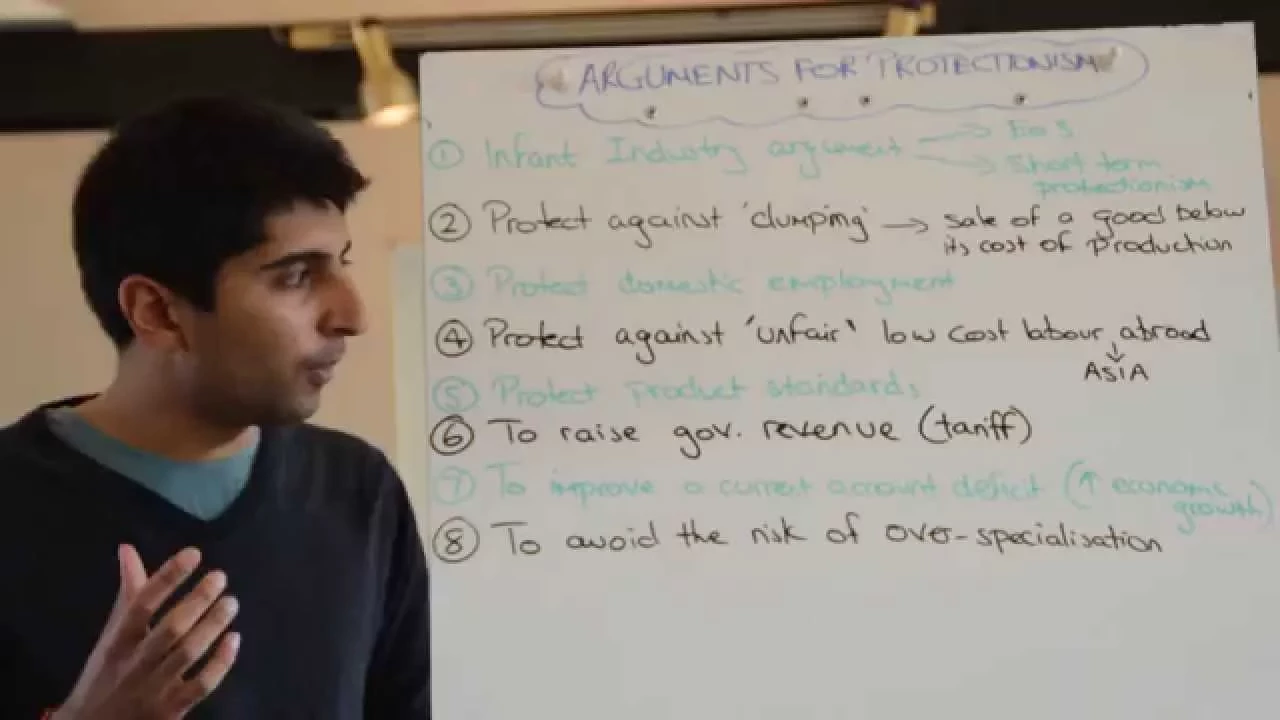 ARGUMENTS FOR PROTECTIONISM
① Infant Industry argument → EoS
→ Short term
protectionism
② Protect against 'dumping' → sale of a good below
its cost of production
③ Protect domestic employment
④ Protect against 'unfair' low cost labour abroad
↓
ASIA
⑤ Protect product standards
⑥ To raise gov. revenue (tariff)
⑦ To improve a current account deficit (↑ economic
growth)
⑧ To avoid the risk of over-specialisation